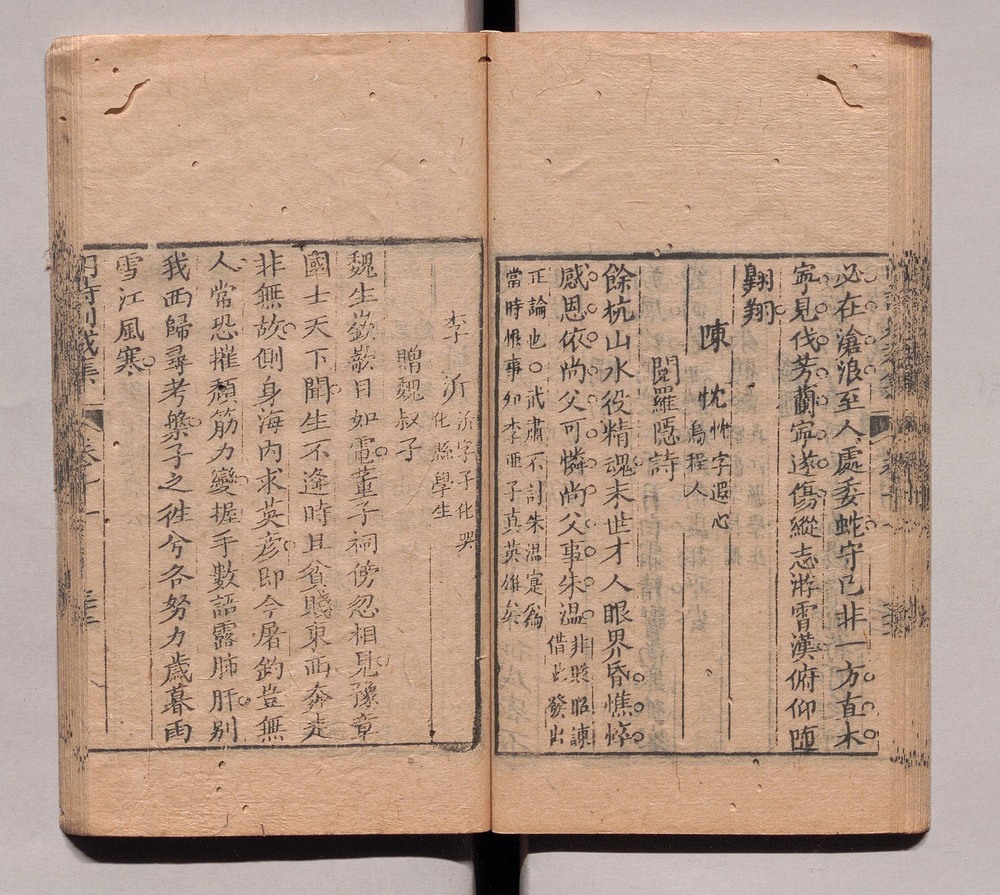 必在滄浪至人處委蛇守已非一方直木
寧見伐芳蘭寧遂傷縱志游霄漢俯仰
翺翔
陳忱
忱字遐心
烏程人
閱羅隱詩
餘杭山水役精魂末世才人眼界昏憔悴
感恩依尚父可憐尚父事朱温
非貶昭諫
借此發出
正論也〇武肅不討朱温寔為
當時恨事如李亞子真英雄矣
李沂
沂字子化
化縣學生
贈魏叔子
魏生嶔㟢目如電董子祠傍忽相見豫章
國士天下聞生不逢時且貧賤東西奔走
非無故側身海內求英彦即今屠釣豈無
人常恐摧頹筋力變握手數語露肺肝別
我西歸尋考槃子之徃兮各努力歲暮雨
雪江風寒